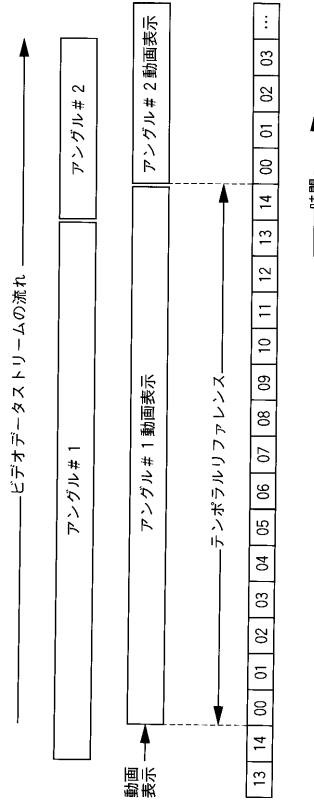 ビデオデータストリームの流れ
アングル＃1
アングル＃2
動画
表示
アングル＃1動画表示
アングル＃2動画表示
テンポラルリファレンス
13 14 00 01 02 03 04 05 06 07 08 09 10 11 12 13 14 00 01 02 03 …